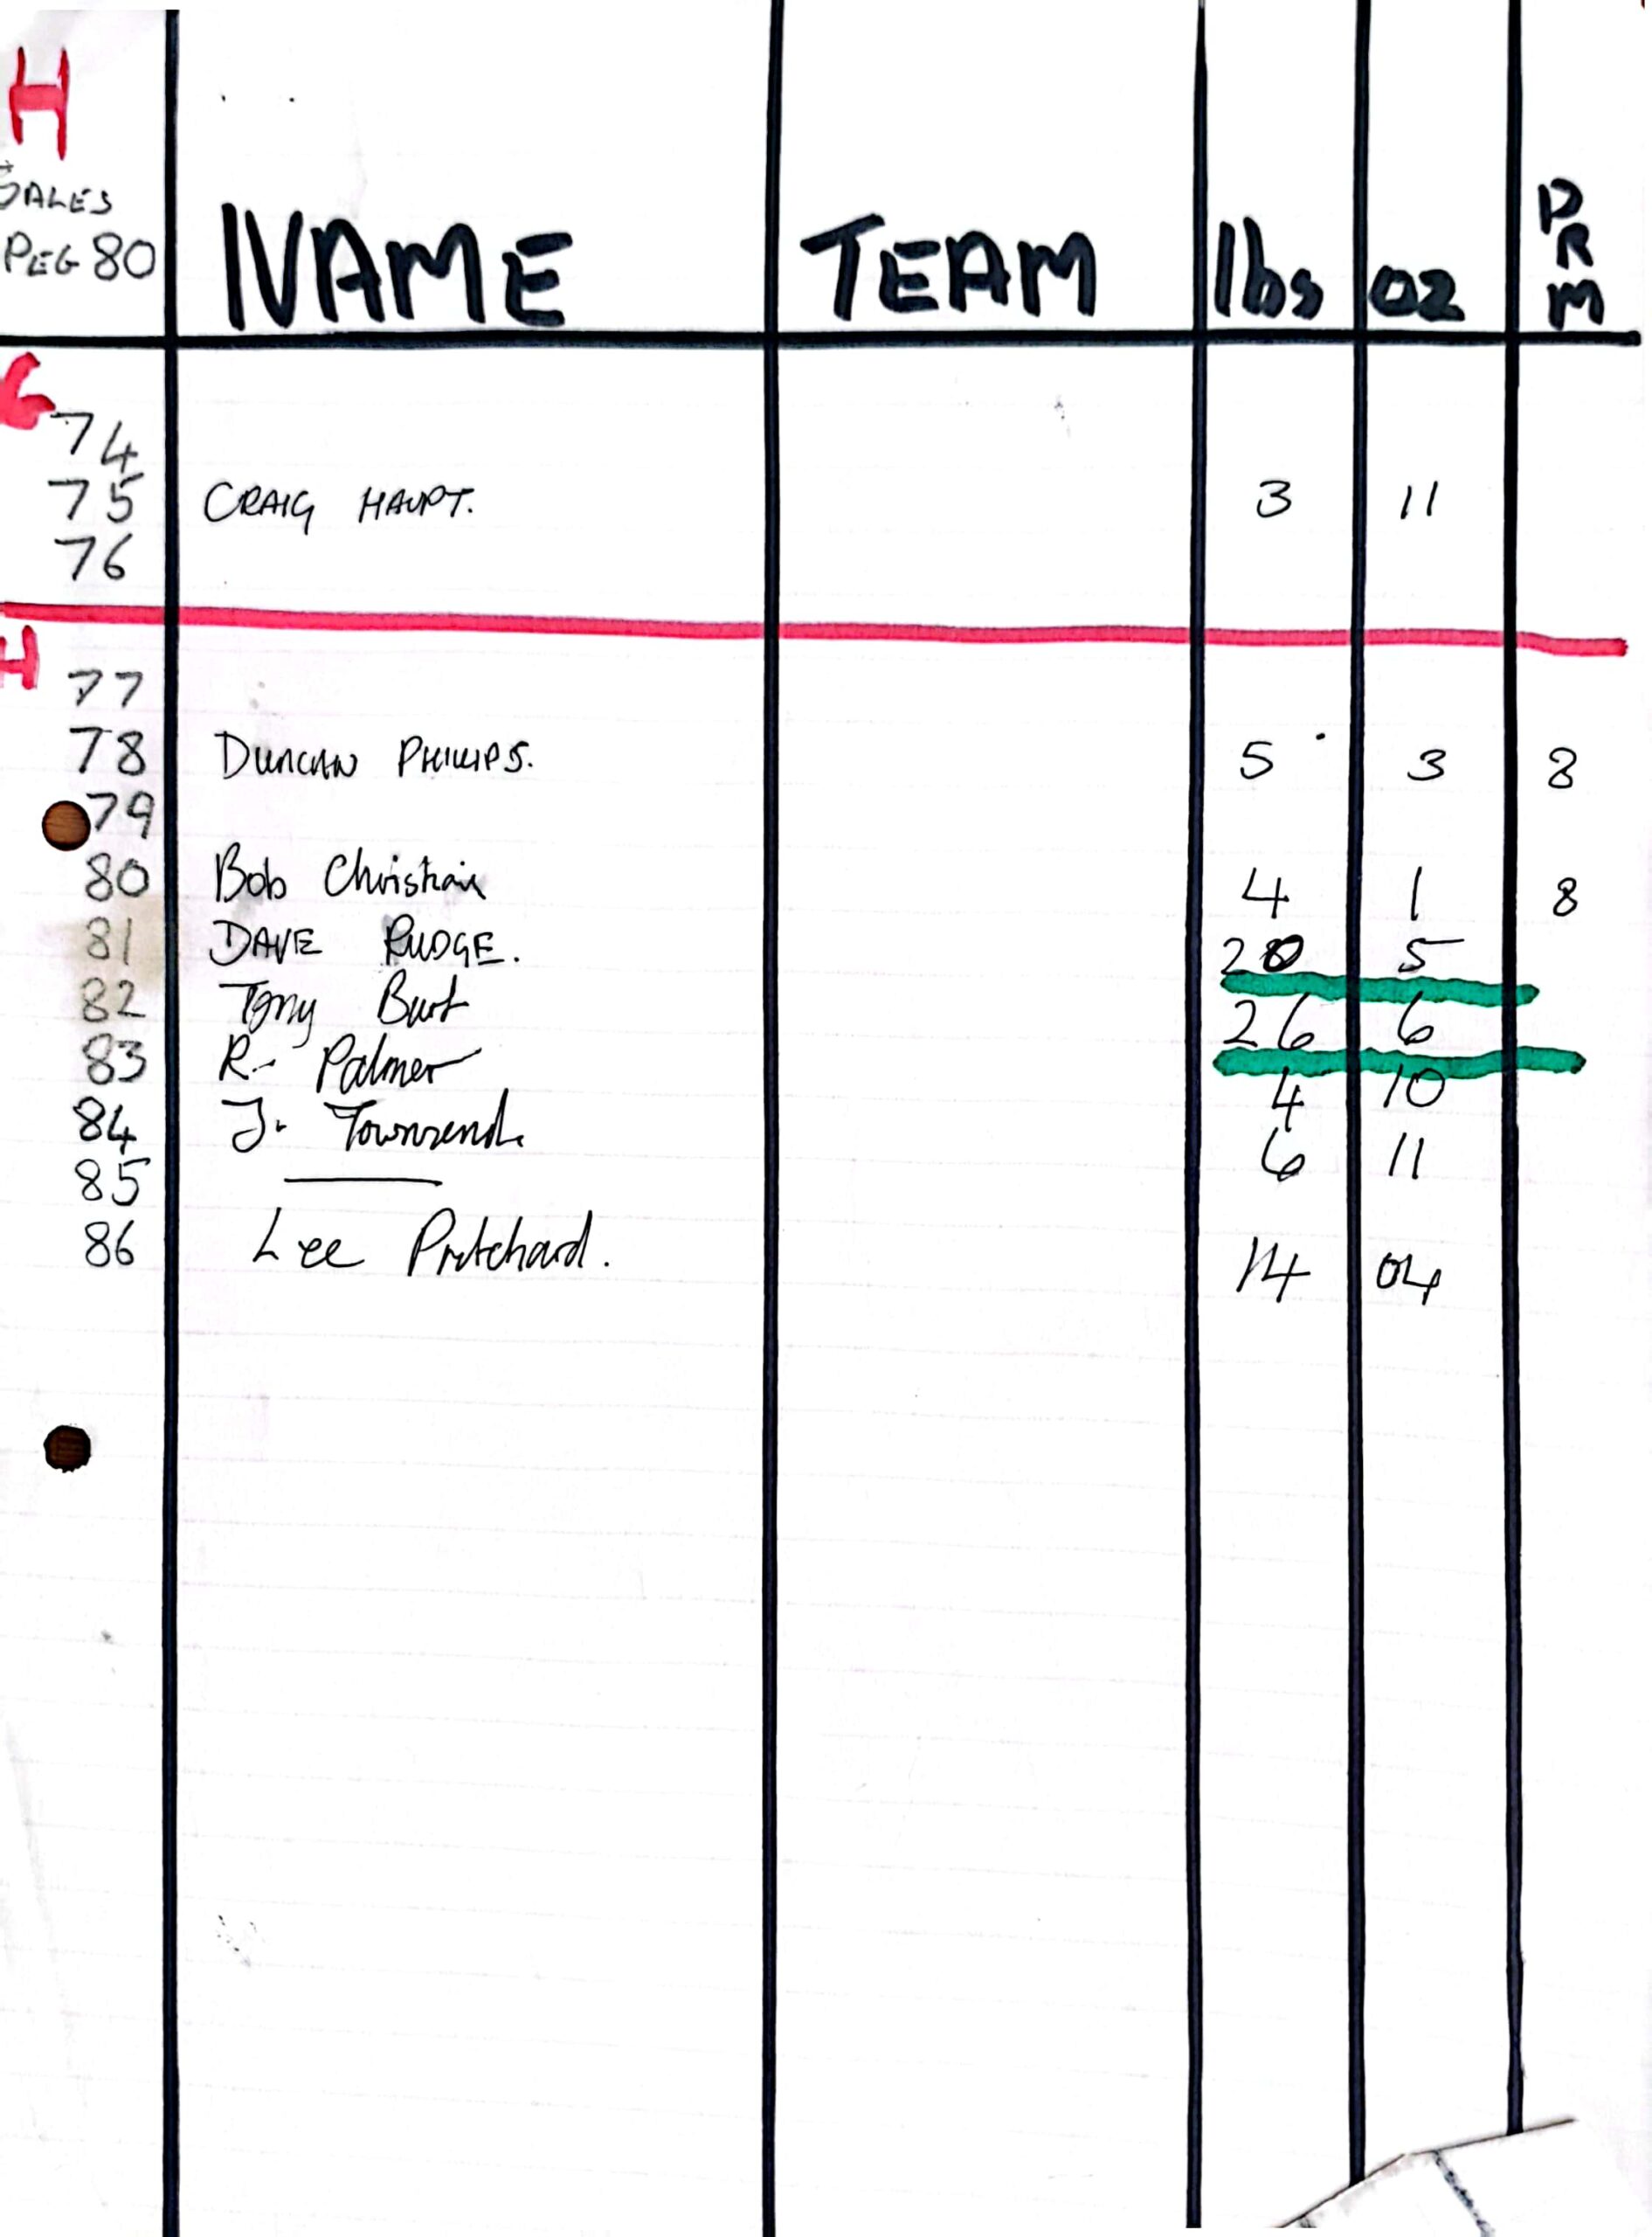 H
SALES
PEG 80 NAME TEAM lbs oz DRM
G
74
75 CRAIG HAUPT. 3 11
76
H
77
78 DUNCAN PHILLIPS. 5 3 8
79
80 Bob Christian 4 1 8
81 DAVE RUDGE. 20 5
82 Tony Burt 26 6
83 R. Palmer 4 10
84 J. Townsend. 6 11
85
86 Lee Pritchard. 14 04